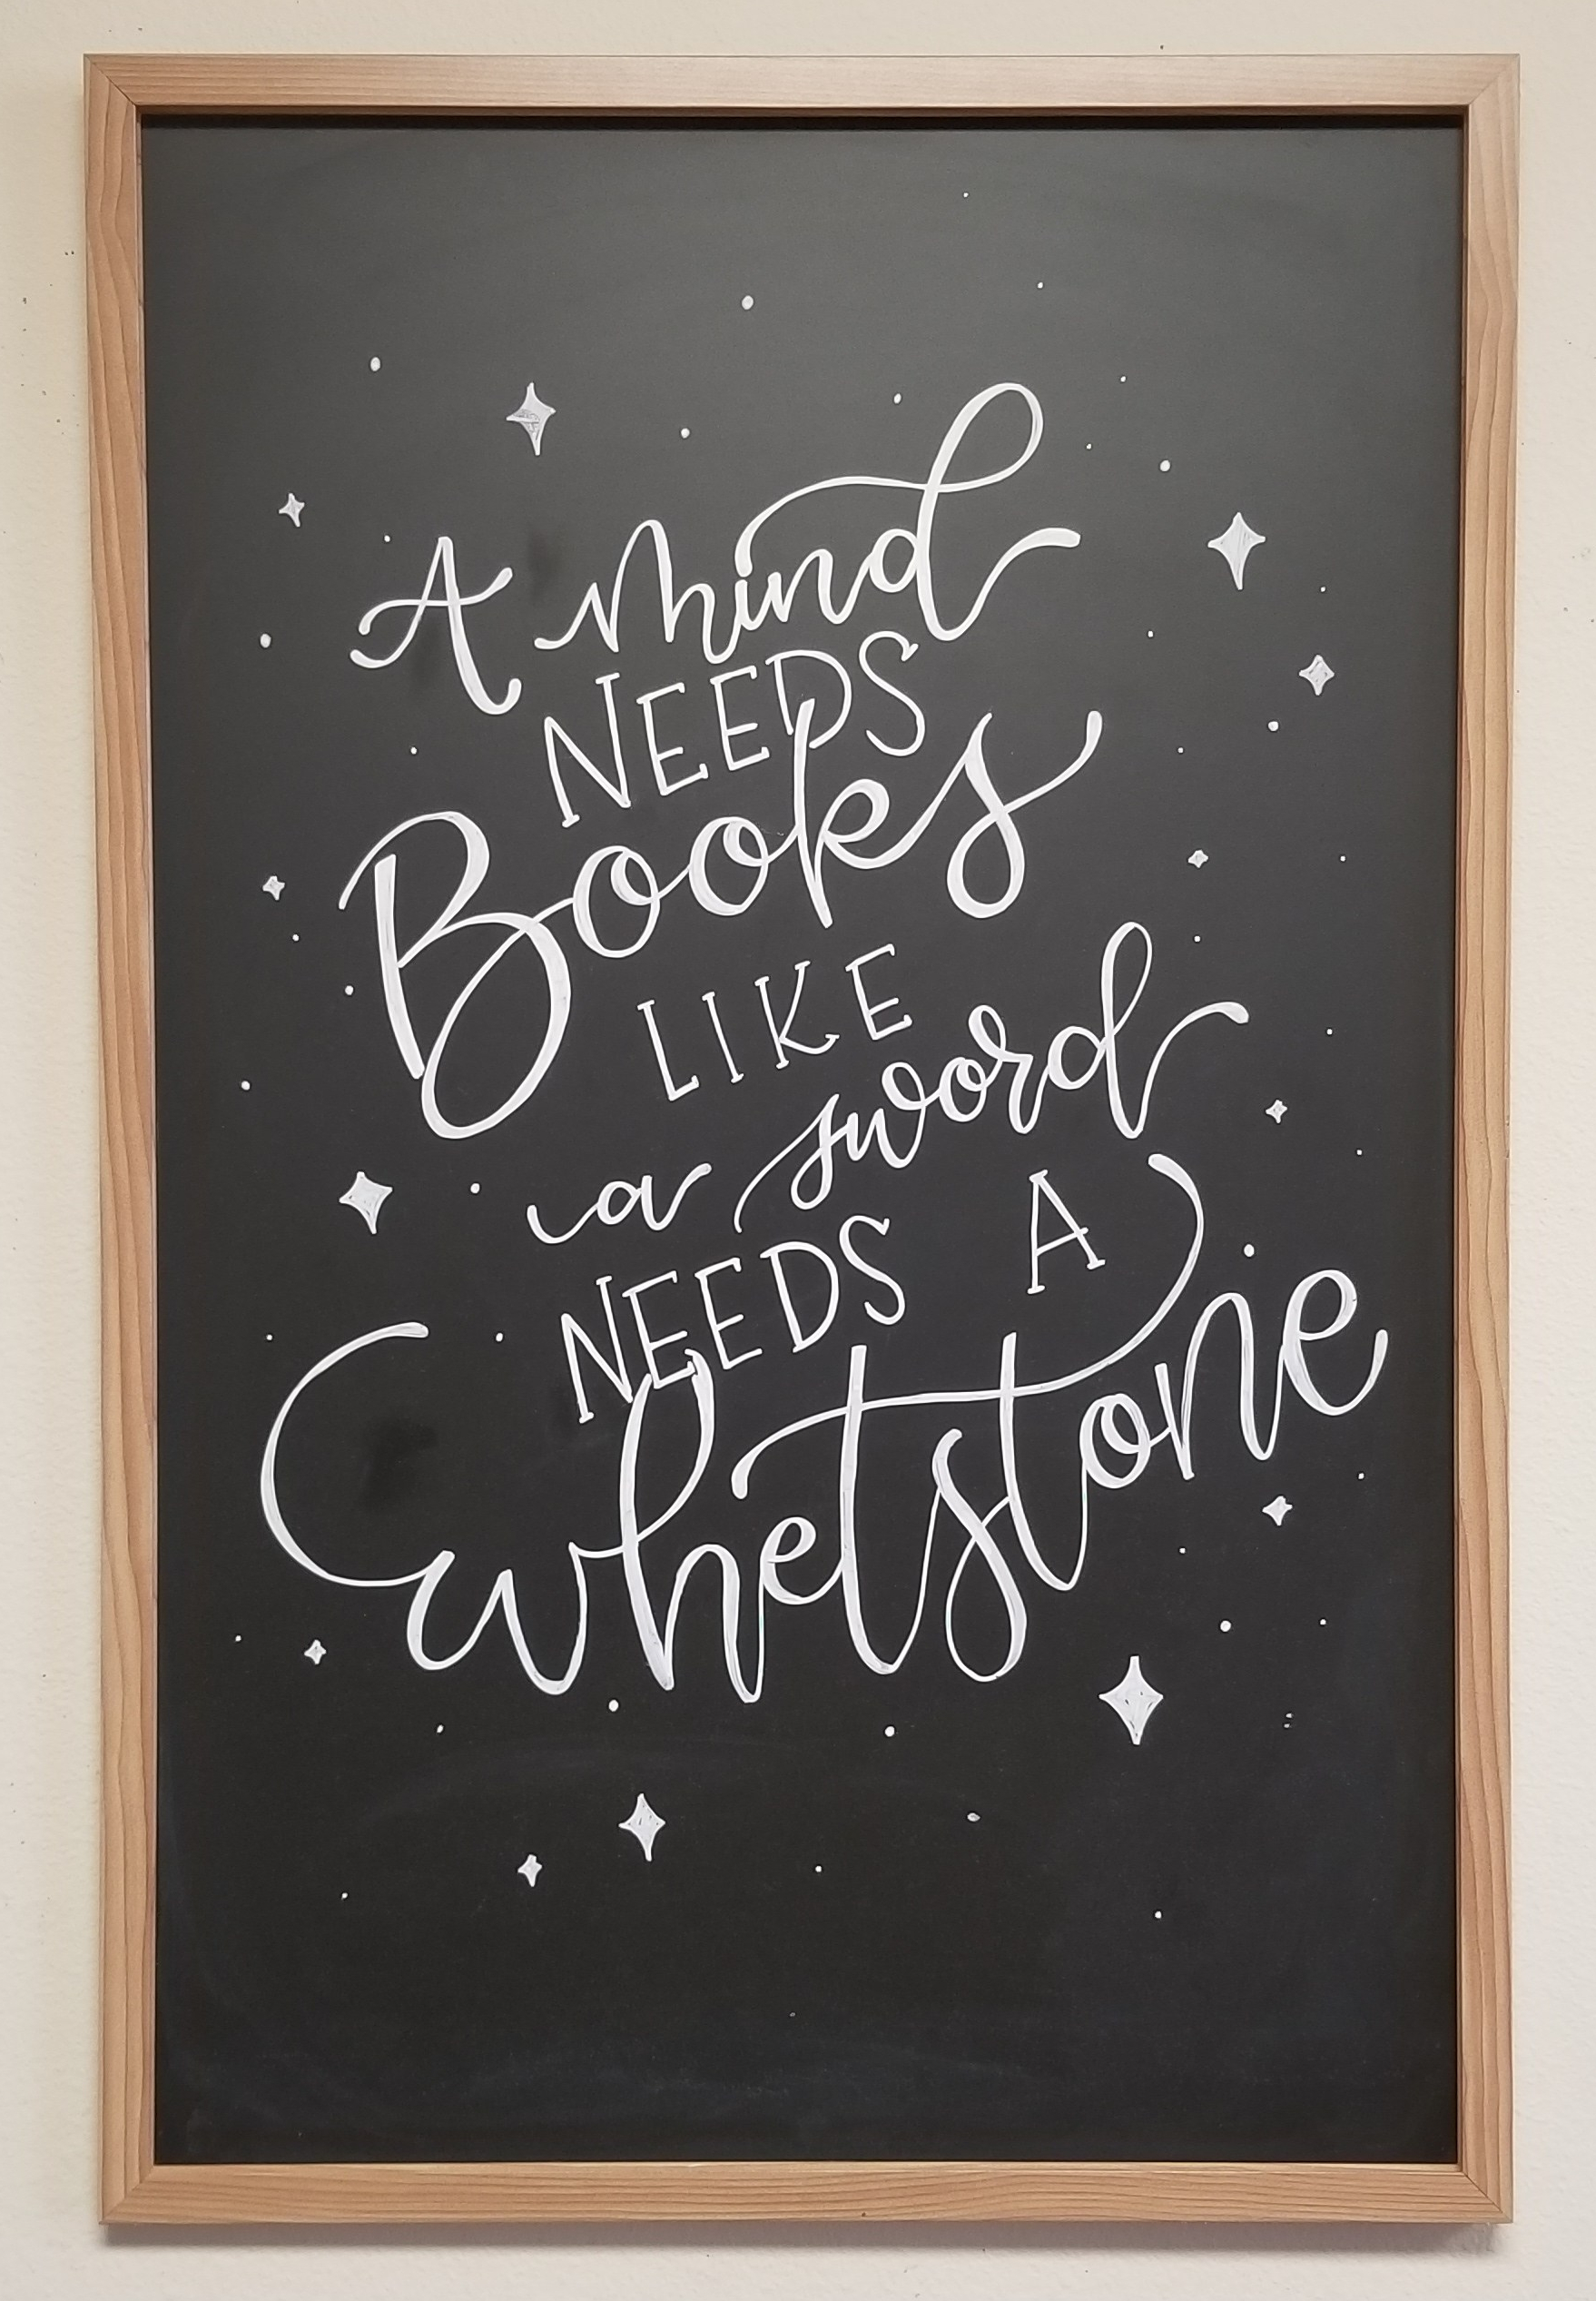 A mind
NEEDS
Books
LIKE
a sword
NEEDS A
whetstone